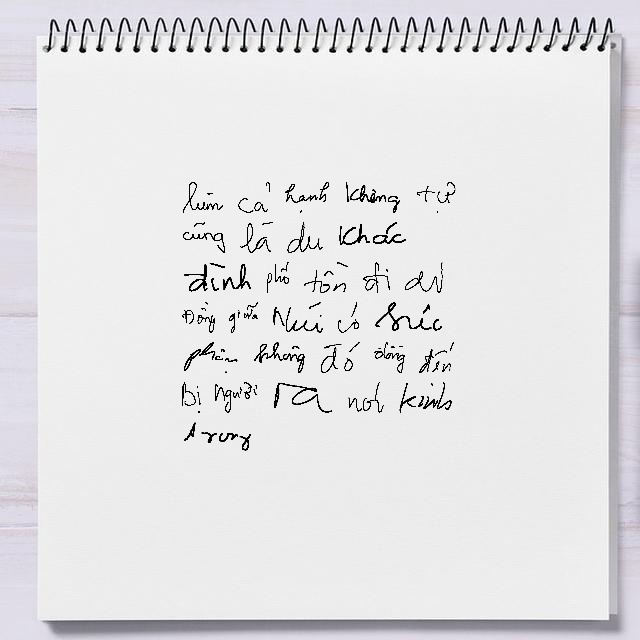 lùn cả hạnh không tự
cũng lã du khác
đình phố tồn đi dự
Đồng giữa Núi có súc
phận không đó động đến
Bị người ra nơi kinh
trong